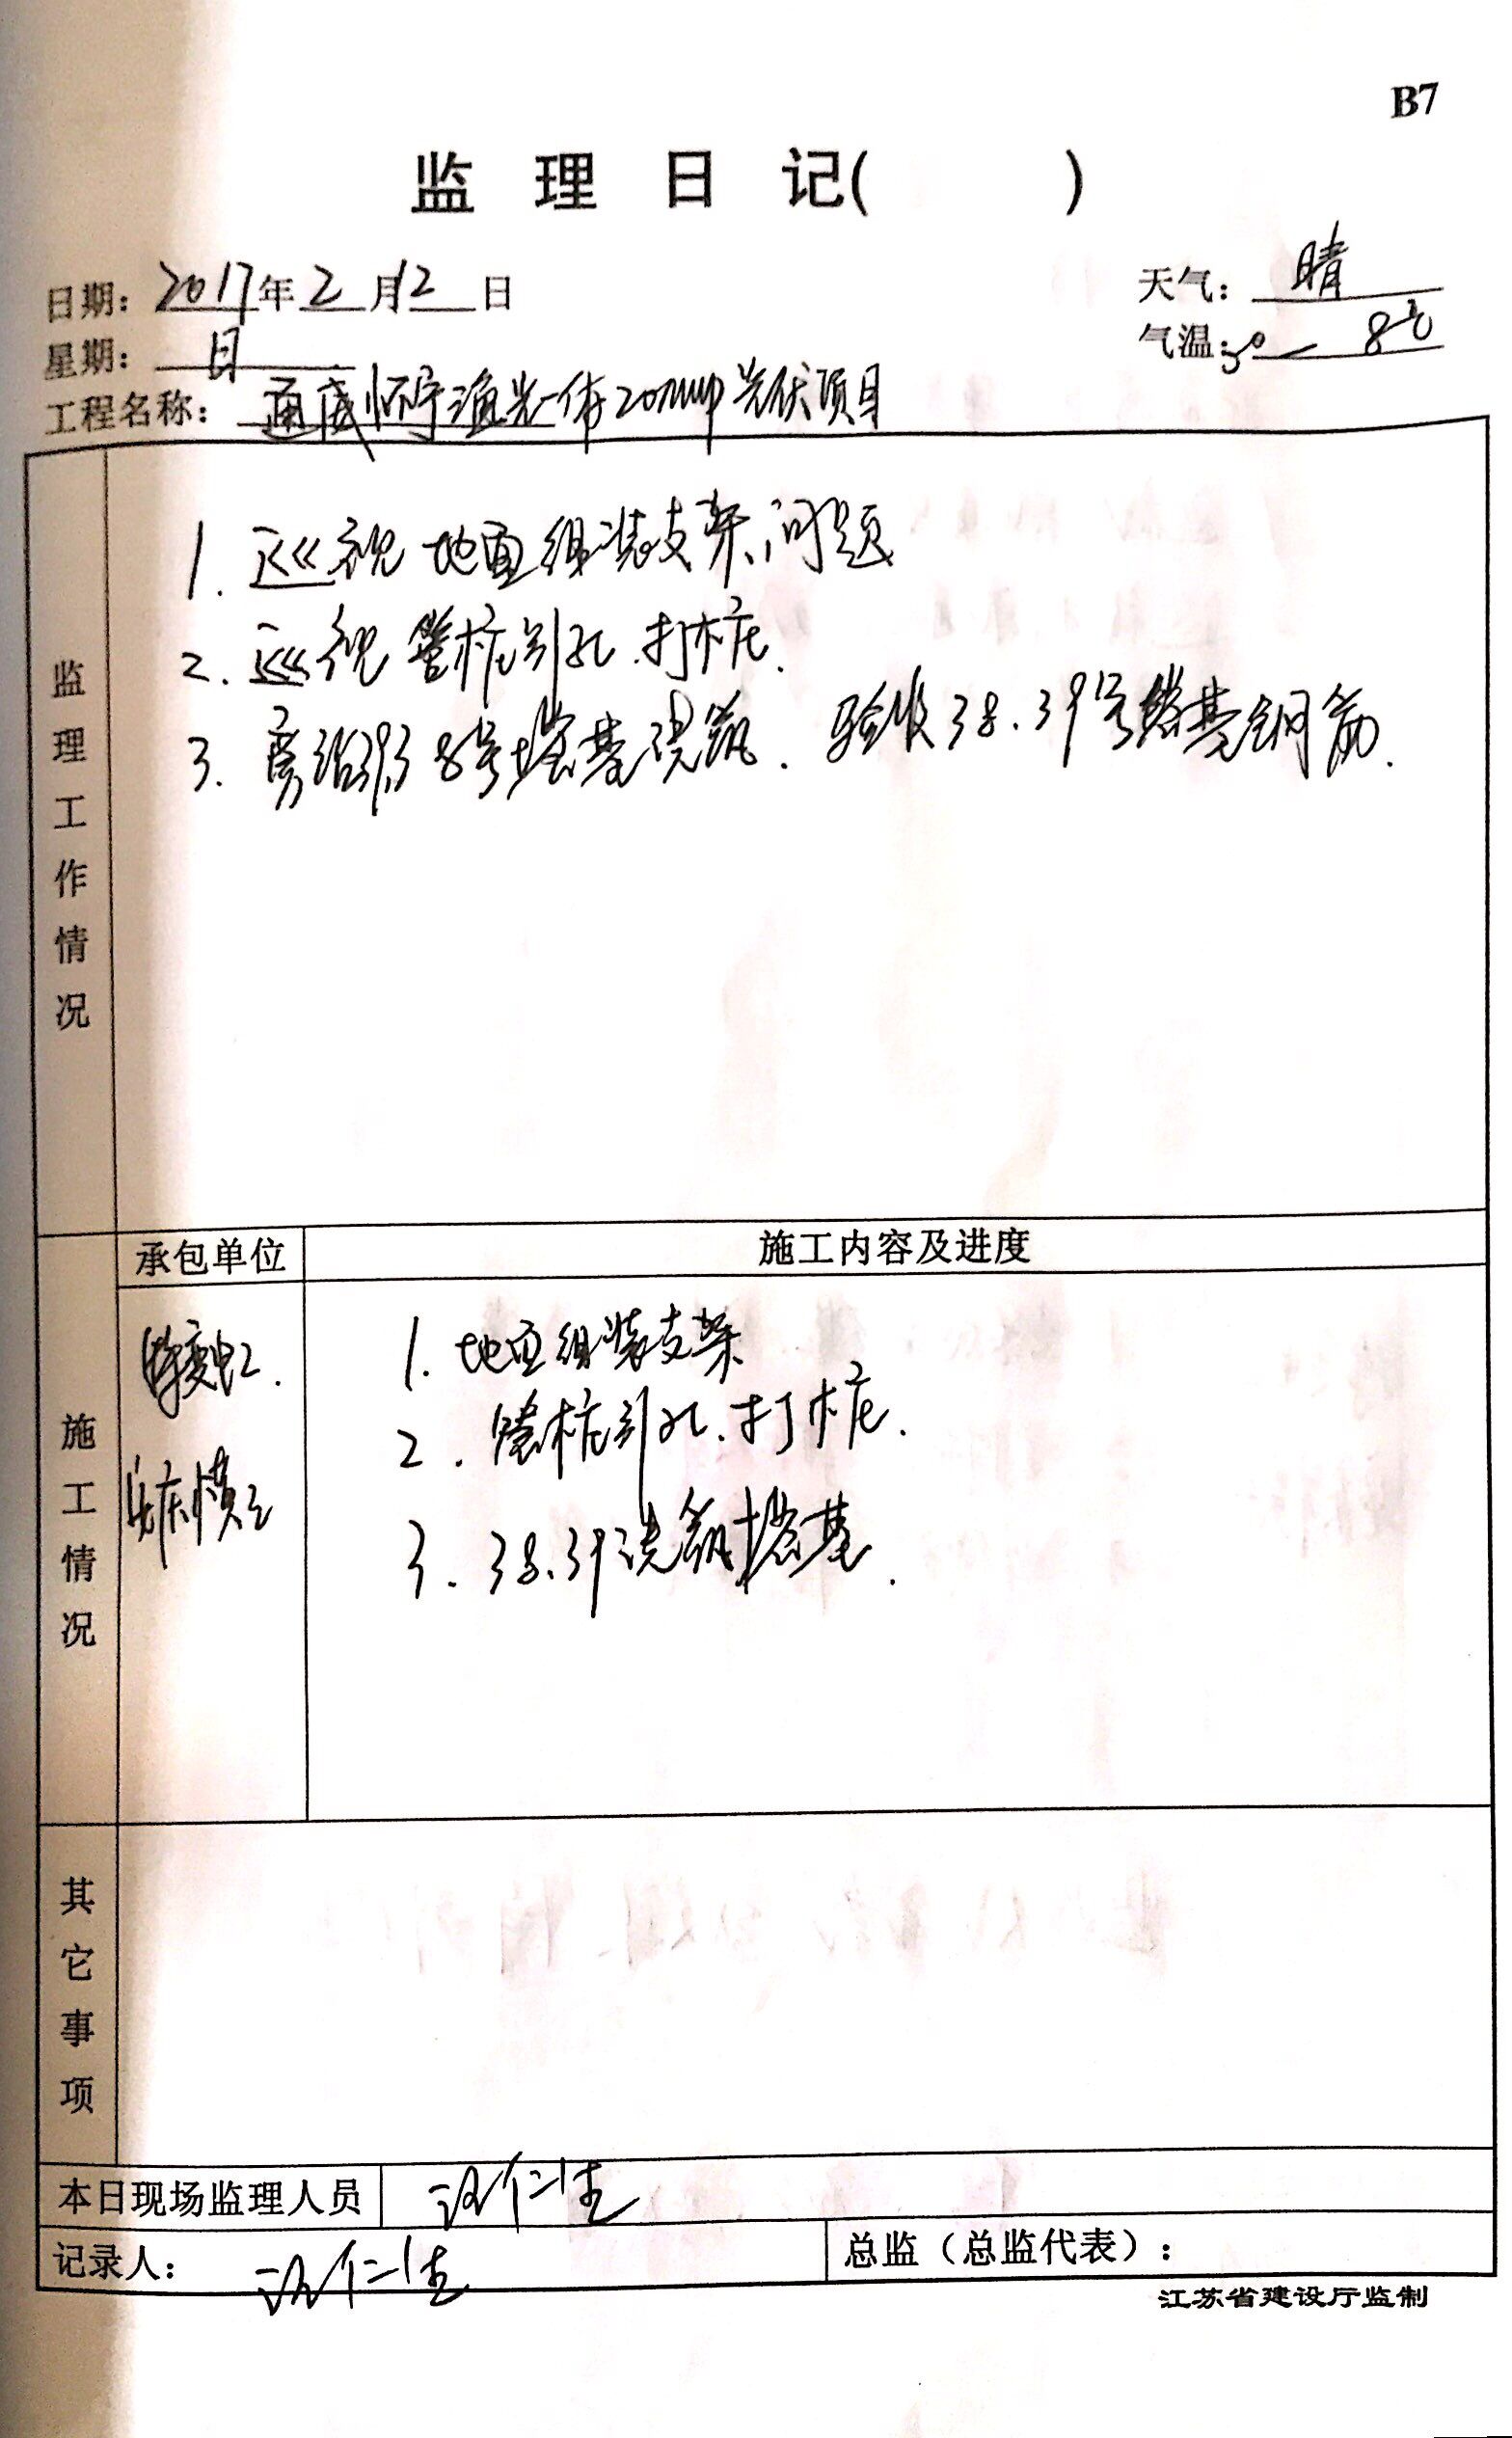 B7
监理日记(          )
日期: 2017年2月12日
天气: 晴
星期: 日
气温: 3° — 8℃
工程名称: 通威怀宁渔光一体20MWP光伏项目
监理工作情况
1. 巡视地面组装支架问题
2. 巡视管桩引孔.打桩.
3. 旁站 38号塔基浇筑. 验收38.39号塔基钢筋.
承包单位
施工内容及进度
施工情况
1. 地面组装支架
2. 管桩引孔.打桩.
3. 38.39浇筑塔基.
安庆横立
其它事项
本日现场监理人员
记录人:
总监（总监代表）:
江苏省建设厅监制